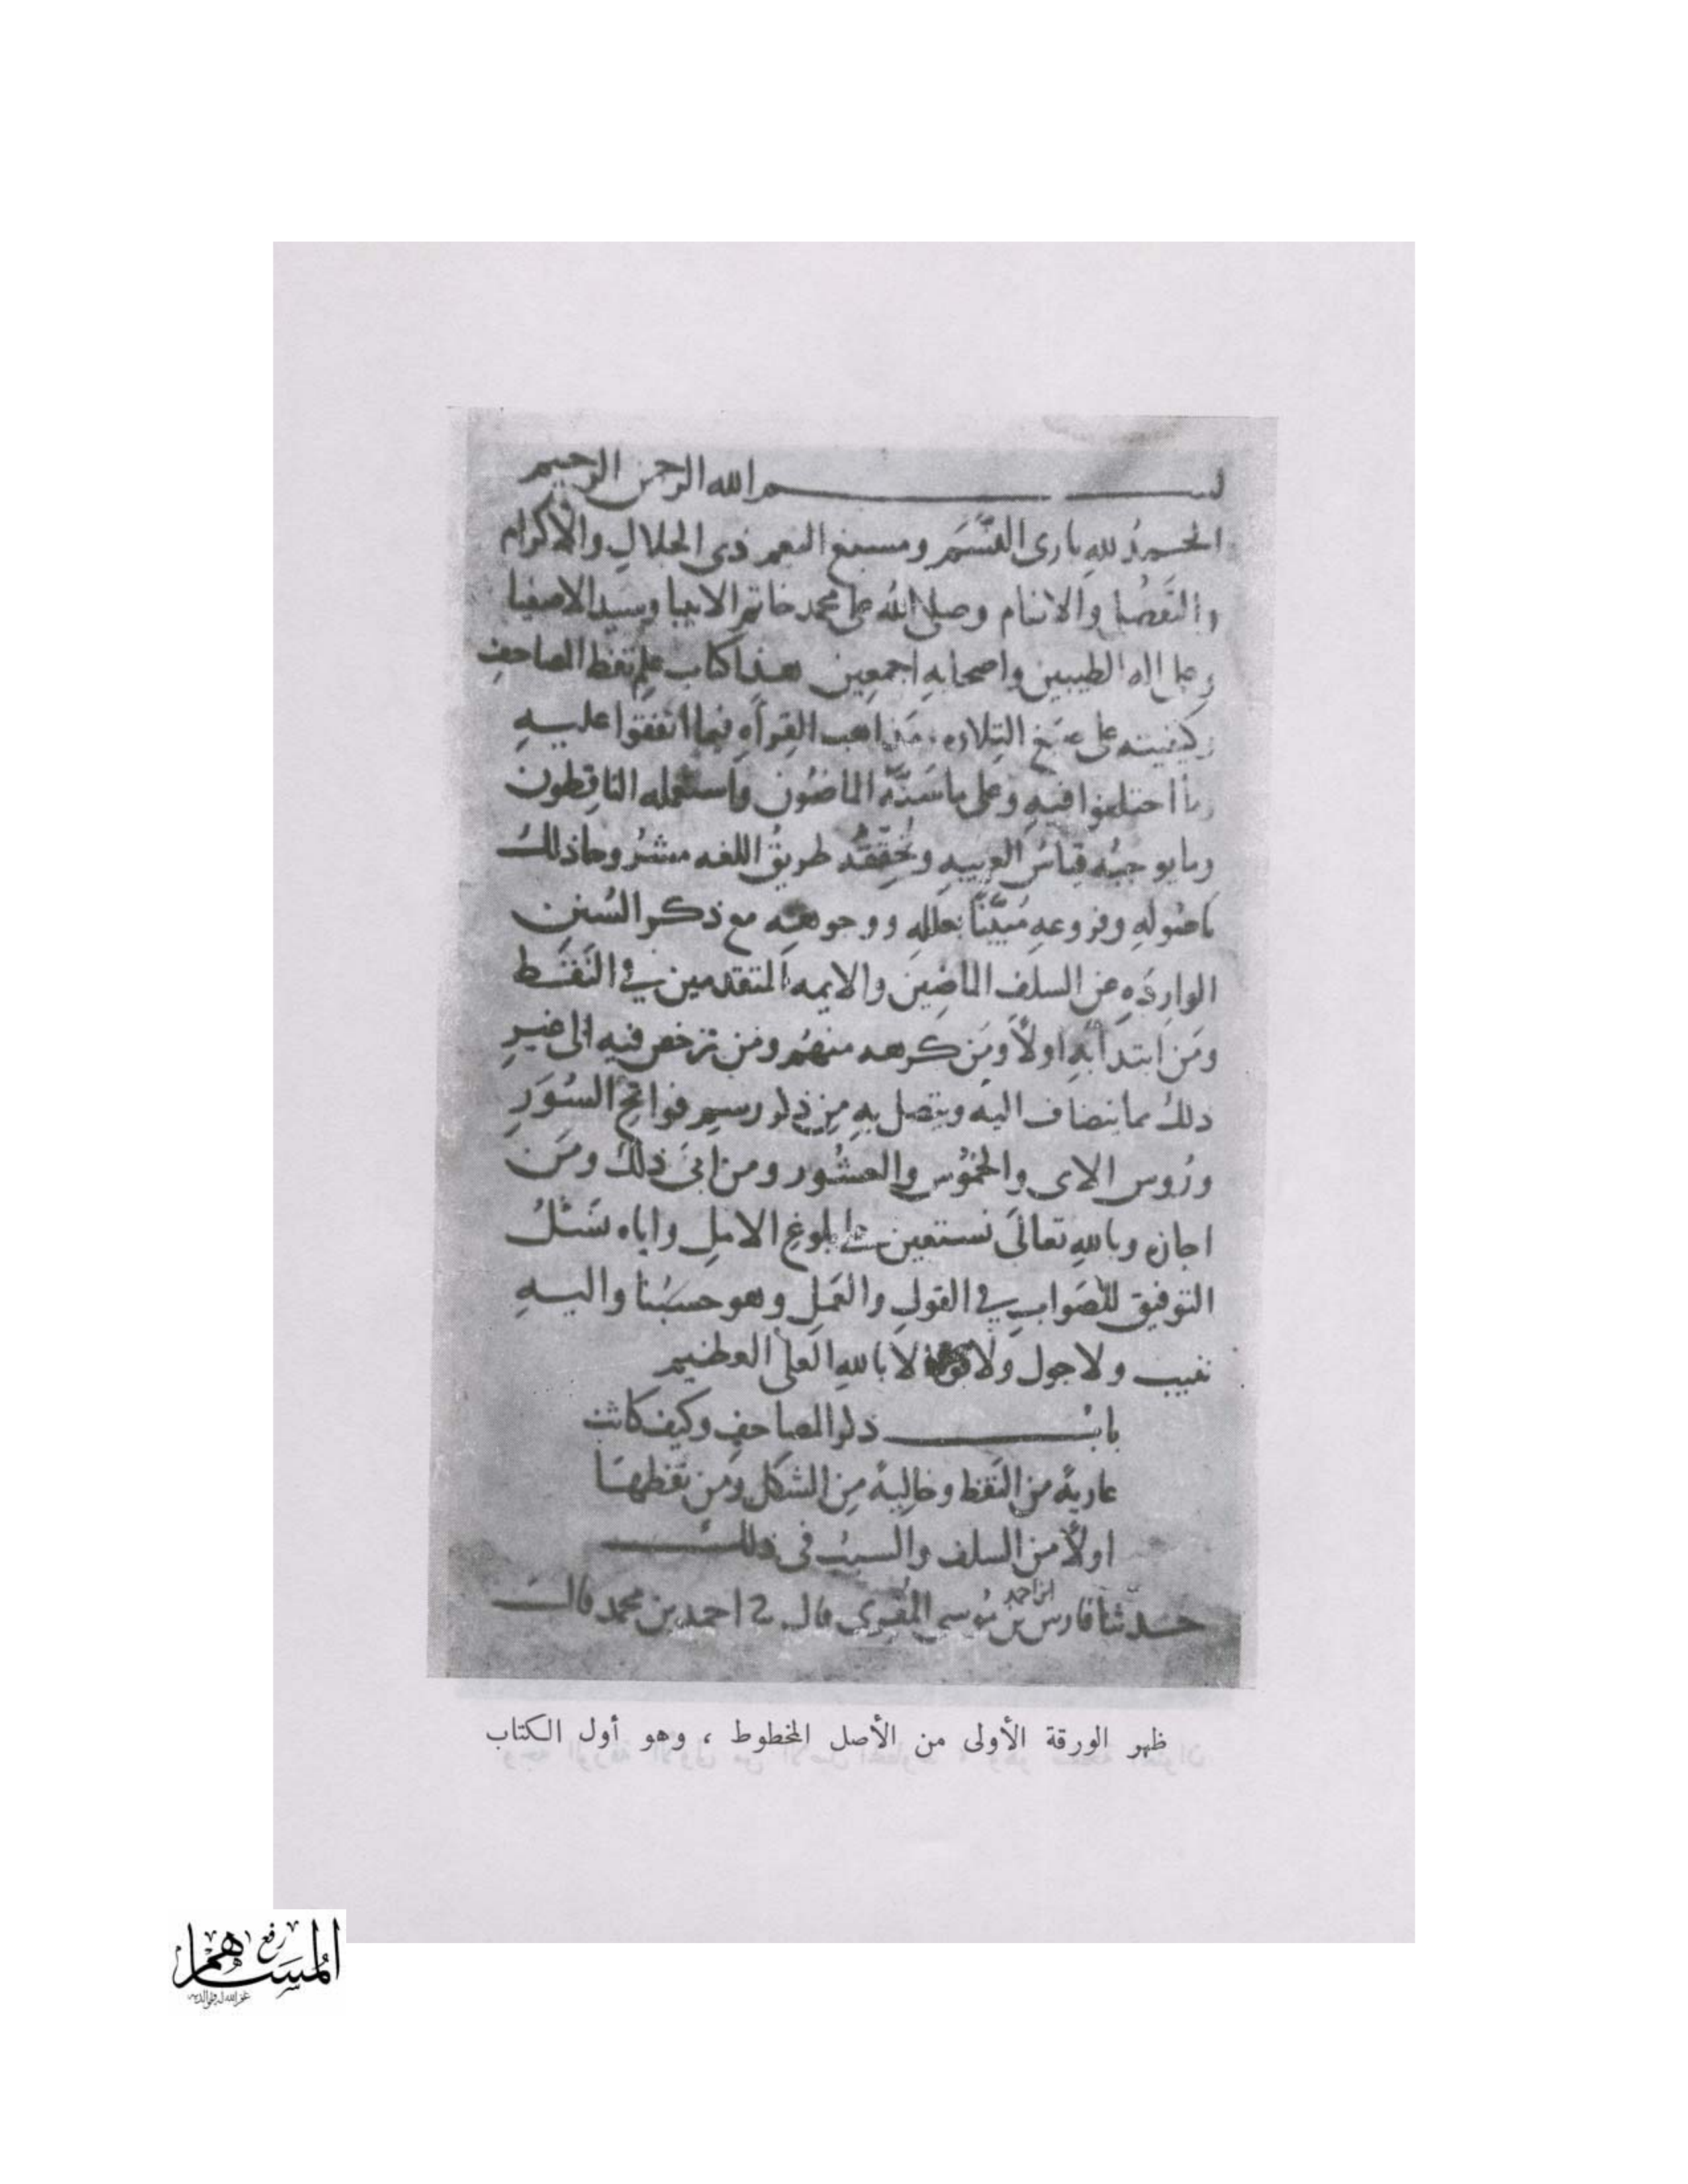 بسم الله الرحمن الرحيم
الحمدُ للهِ بارى النَّسَم ومسبغ النعم ذى الجلالِ والاكرام
والتفضل والانعام وصلى الله على محمد خاتم الانبيا وسيد الاصفيا
وعلى اله الطيبين واصحابهِ اجمعين هذا كتاب علم نقط المصاحفِ
وكيفيته على صيغ التِلاوه ومذاهب القرأهِ فيما اتفقوا عليهِ
وما اختلفوا فيهِ وعلى ما سَنَّه الماضُون واستعمله الناقِطون
وما يوجبُه قياسُ العربيهِ وتُحقِّقُه طريقُ اللغه مشرُوحا ذلكَ
باصُولهِ وفروعهِ مُبيَّنًا بعللهِ ووجوههِ مع ذكر السُنن
الوارِدَهِ عن السلف الماضِين والايمه المتقدمين في النَقْط
ومَن ابتدأ بهِ اولاً ومَن كرهه منهُم ومَن ترخص فيه الى غيرِ
ذلك مما ينضاف اليه ويتصل بهِ مِن ذكر رسمِ فواتحِ السُوَرِ
ورُوس الاى والخمُوس والعشُور ومن ابَى ذلك ومَن
اجازه وباللهِ تعالَى نستعين على بلوغِ الاملِ واياه نسَئلُ
التوفيق للصَوابِ في القولِ والعَملِ وهو حسبُنا واليهِ
ننيب ولا حول ولا قوة الا باللهِ العلى العظيم
بابُ ذكر المصاحفِ وكيف كانت
عاريةً من النَقط وخاليةً مِن الشكل ومَن نقطها
اولاً من السلف والسببُ فى ذلك
حدثنا فارس بن احمد بن مُوسى المُقرى قال ٢ احمد بن محمد قال
ظهر الورقة الأولى من الأصل المخطوط ، وهو أول الكتاب
رفع
المساهم
غفر الله له ولوالديه